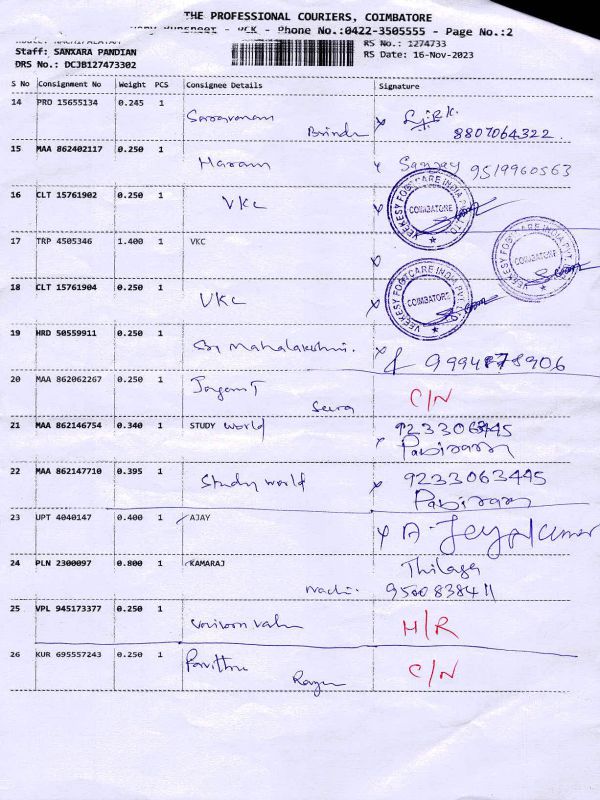 THE PROFESSIONAL COURIERS, COIMBATORE
Phone No.:0422-3505555 - Page No.:2
Staff: SANKARA PANDIAN
DRS No.: DCJB127473302
RS No.: 1274733
RS Date: 16-Nov-2023
S No Consignment No Weight PCS Consignee Details Signature
14 PRO 15655134 0.245 1 Saravanan
8807064322
15 MAA 862402117 0.250 1 Sanjay 9519960563
16 CLT 15761902 0.250 1 VKC
VEEKESY FOOTCARE INDIA PVT. LTD. COIMBATORE
17 TRP 4505346 1.400 1 VKC
VEEKESY FOOTCARE INDIA PVT. COIMBATORE
18 CLT 15761904 0.250 1 VKC
VEEKESY FOOTCARE INDIA PVT. COIMBATORE
19 HRD 50559911 0.250 1 Sri Mahalakshmi.
20 MAA 862062267 0.250 1 C/N
21 MAA 862146754 0.340 1 STUDY World
22 MAA 862147710 0.395 1 Study world 9233063445
23 UPT 4040147 0.400 1 AJAY A. Jeyakumar
24 PLN 2300097 0.800 1 KAMARAJ Thilaga
9500838411
25 VPL 945173377 0.250 1 H/R
26 KUR 695557243 0.250 1 Pavithra C/N